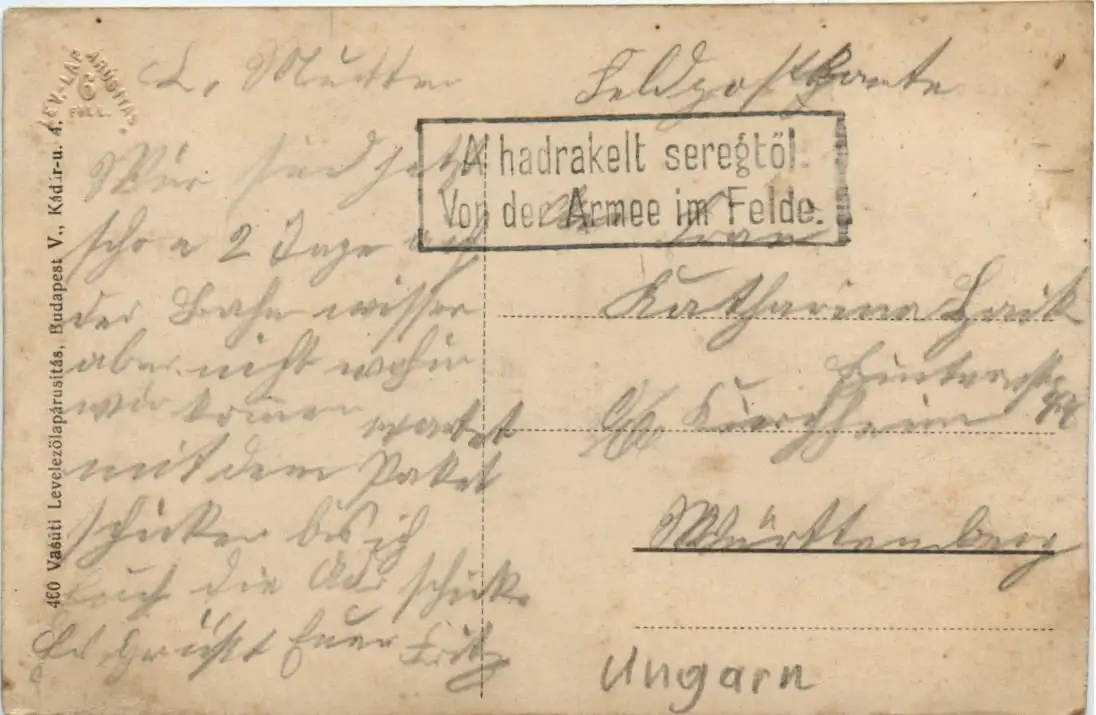 L. Mutter
Wir sind jetzt
schon 2 Tage auf
der Bahn wissen
aber nicht wohin
wir kommen wartet
mit dem Paket
schicken bis ich
Euch die Adr. schicke
Es grüsst Euer Fritz
Feldpostkarte
A hadrakelt seregtöl.
Von der Armee im Felde.
An Frau
Katharina
Kirchheim
Württemberg
Ungarn
LEV.-LAP ÁRUSITÁS
460 Vasúti Levelezölapárusitás, Budapest V., Kádár-u. 4.